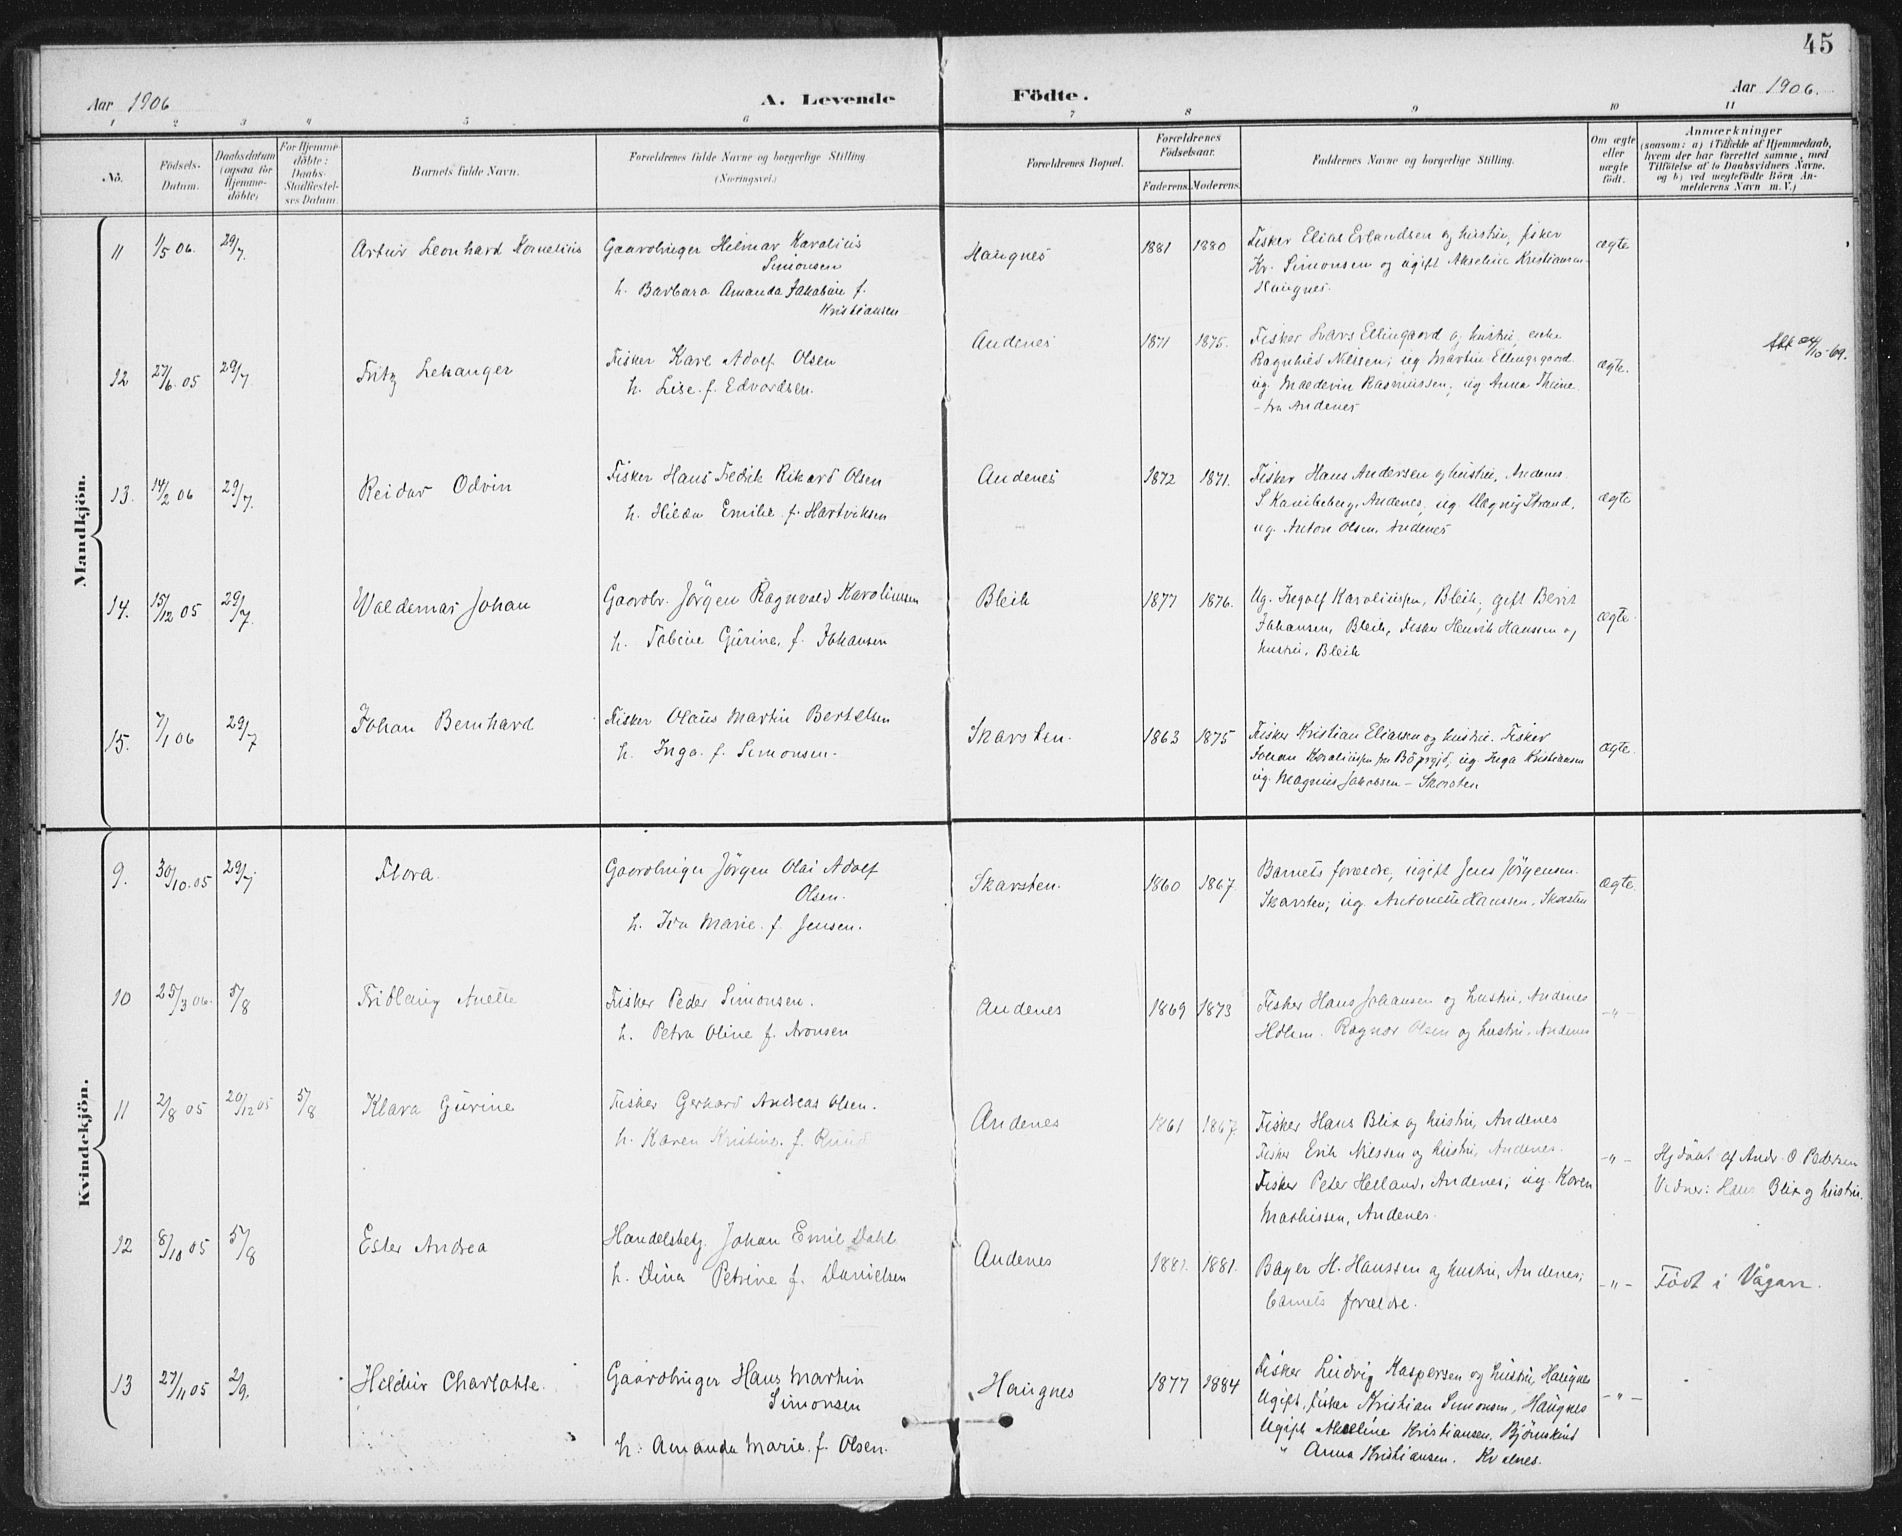 45
Aar 1906
A. Levende Födte.
Aar 1906.
1 2 3 4 5 6 7 8 9 10 11
No.
Födsels-Datum.
Daabsdatum (ogsaa for Hjemmedöbte)
For Hjemmedöbte: Daabs-Stadfæstelses Datum.
Barnets fulde Navn.
Forældrenes fulde Navne og borgerlige Stilling. (Næringsvei.)
Forældrenes Bopæl.
Forældrenes Födselsaar.
Faderens. Moderens.
Faddernes Navne og borgerlige Stilling.
Om ægte eller uægte födt.
Anmærkninger
(saasom: a) i Tilfælde af Hjemmedaab, hvem der har forrettet samme, med Tilföielse af to Daabsvidners Navne. og b) ved uægtefödte Börn Anmelderens Navn m. V.)
Mandkjön.
11 1/5 06. 29/7. Artur Leonhard Kornelius
Gaardbruger Hilmar Karolius
Simonsen
h. Barbara Amanda Jakobine f.
Kristiansen
Haugnes 1881 1880
Fisker Elias Erlandsen og hustru, fisker
Kr. Simonsen og ugift Akseline Kristiansen
Haugnes.
ægte
12 27/6. 05 29/7 Fritz Lekanger
Fisker Karl Adolf Olsen
h. Lise f. Edvardsen.
Andenes 1871 1875.
Fisker Lars Ellingsord og hustru, enke
Ragnhild Nilssen, ug Martin Ellingsgaard
ug. Maldevin Rasmussen, ug Anna Theine
- fra Andenes
ægte.
13. 14/2 06 29/7. Reidar Odvin
Fisker Hans Fredrik Rikard Olsen
h. Hilda Emilie f. Hartviksen
Andenes 1872 1871.
Fisker Hans Andersen og hustru, Andenes
Andenes, ug. Dagny Strand,
ug. Anton Olsen, Andenes
ægte
14. 15/12 05 29/7. Waldemar Johan
Gaardbr. Jörgen Ragnvald Karoliussen
h. Tobine Gurine, f. Johansen
Bleik 1877 1876.
Ug. Ingolf Karoliussen, Bleik, gift Berit
Johansen, Bleik, Fisker Henrik Hanssen og
hustru, Bleik
ægte
15. 7/1 06 29/7 Johan Bernhard
Fisker Olaus Martin Bertelsen
h. Inga f. Simonsen.
Skarsten. 1863 1875
Fisker Kristian Eliassen og hustru. Fisker
Johan Karoliussen fra ug. Inga Kristiansen
ug. Magnus Jakobsen - Skarsten
ægte
Kvindekjön.
9. 30/10. 05 29/7 Flora.
Gaardbruger Jörgen Olai Adolf
Olsen.
h. Ida Marie f. Jensen.
Skarsten. 1860 1867.
Barnets forældre, ugift Jens Jörgensen
Skarsten; ug. Antonette Hansen, Skarsten
Ægte
10 25/3 06. 5/8 Fridlaug Anette
Fisker Peder Simonsen.
h. Petra Oline f. Aronsen
Andenes 1869 1873
Fisker Hans Johansen og hustru, Andenes
Holsen. Ragnar Olsen og hustru, Andenes
-"-
11 2/8 05 20/12 05 5/8 Klara Gurine
Fisker Gerhard Andreas Olsen.
h. Karen Kristine f. Ruud
Andenes 1861 1867.
Fisker Hans Blix og hustru, Andenes
Fisker Erik Nilssen og hustru, Andenes.
Fisker Peter Helland, Andenes; ug. Karen
Mathissen, Andenes.
-"-
Hjdöbt af Andr. O Pedersen
Vidner: Hans Blix og hustru.
12 8/10 05 5/8 Ester Andrea
Handelsbetj. Johan Emil Dahl
h. Dina Petrine f. Danielsen
Andenes 1881. 1881.
Bager H. Hanssen og hustru, Andenes;
barnets forældre.
-"-
Födt i Vågan.
13 27/11 05 2/9. Hildur Charlotte
Gaardbruger Hans Martin
Simonsen
h. Amanda Marie f. Olsen.
Haugnes 1877 1884
Fisker Ludvig Kaspersen og hustru, Haugnes
Ugift, fisker Kristian Simonsen, Haugnes
Ugift Akseline Kristiansen, Björnskind
" Anna Kristiansen.
-"-